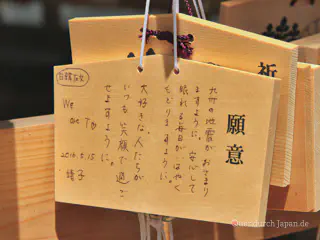 祈
願意
九州の地震がおさまり
ますように。安心して
眠れる毎日がはやく
もどりますように。
大好きな人たちが
いつも笑顔で過ご
せますように。
We
are
2016.5.15
Querdurch Japan.de